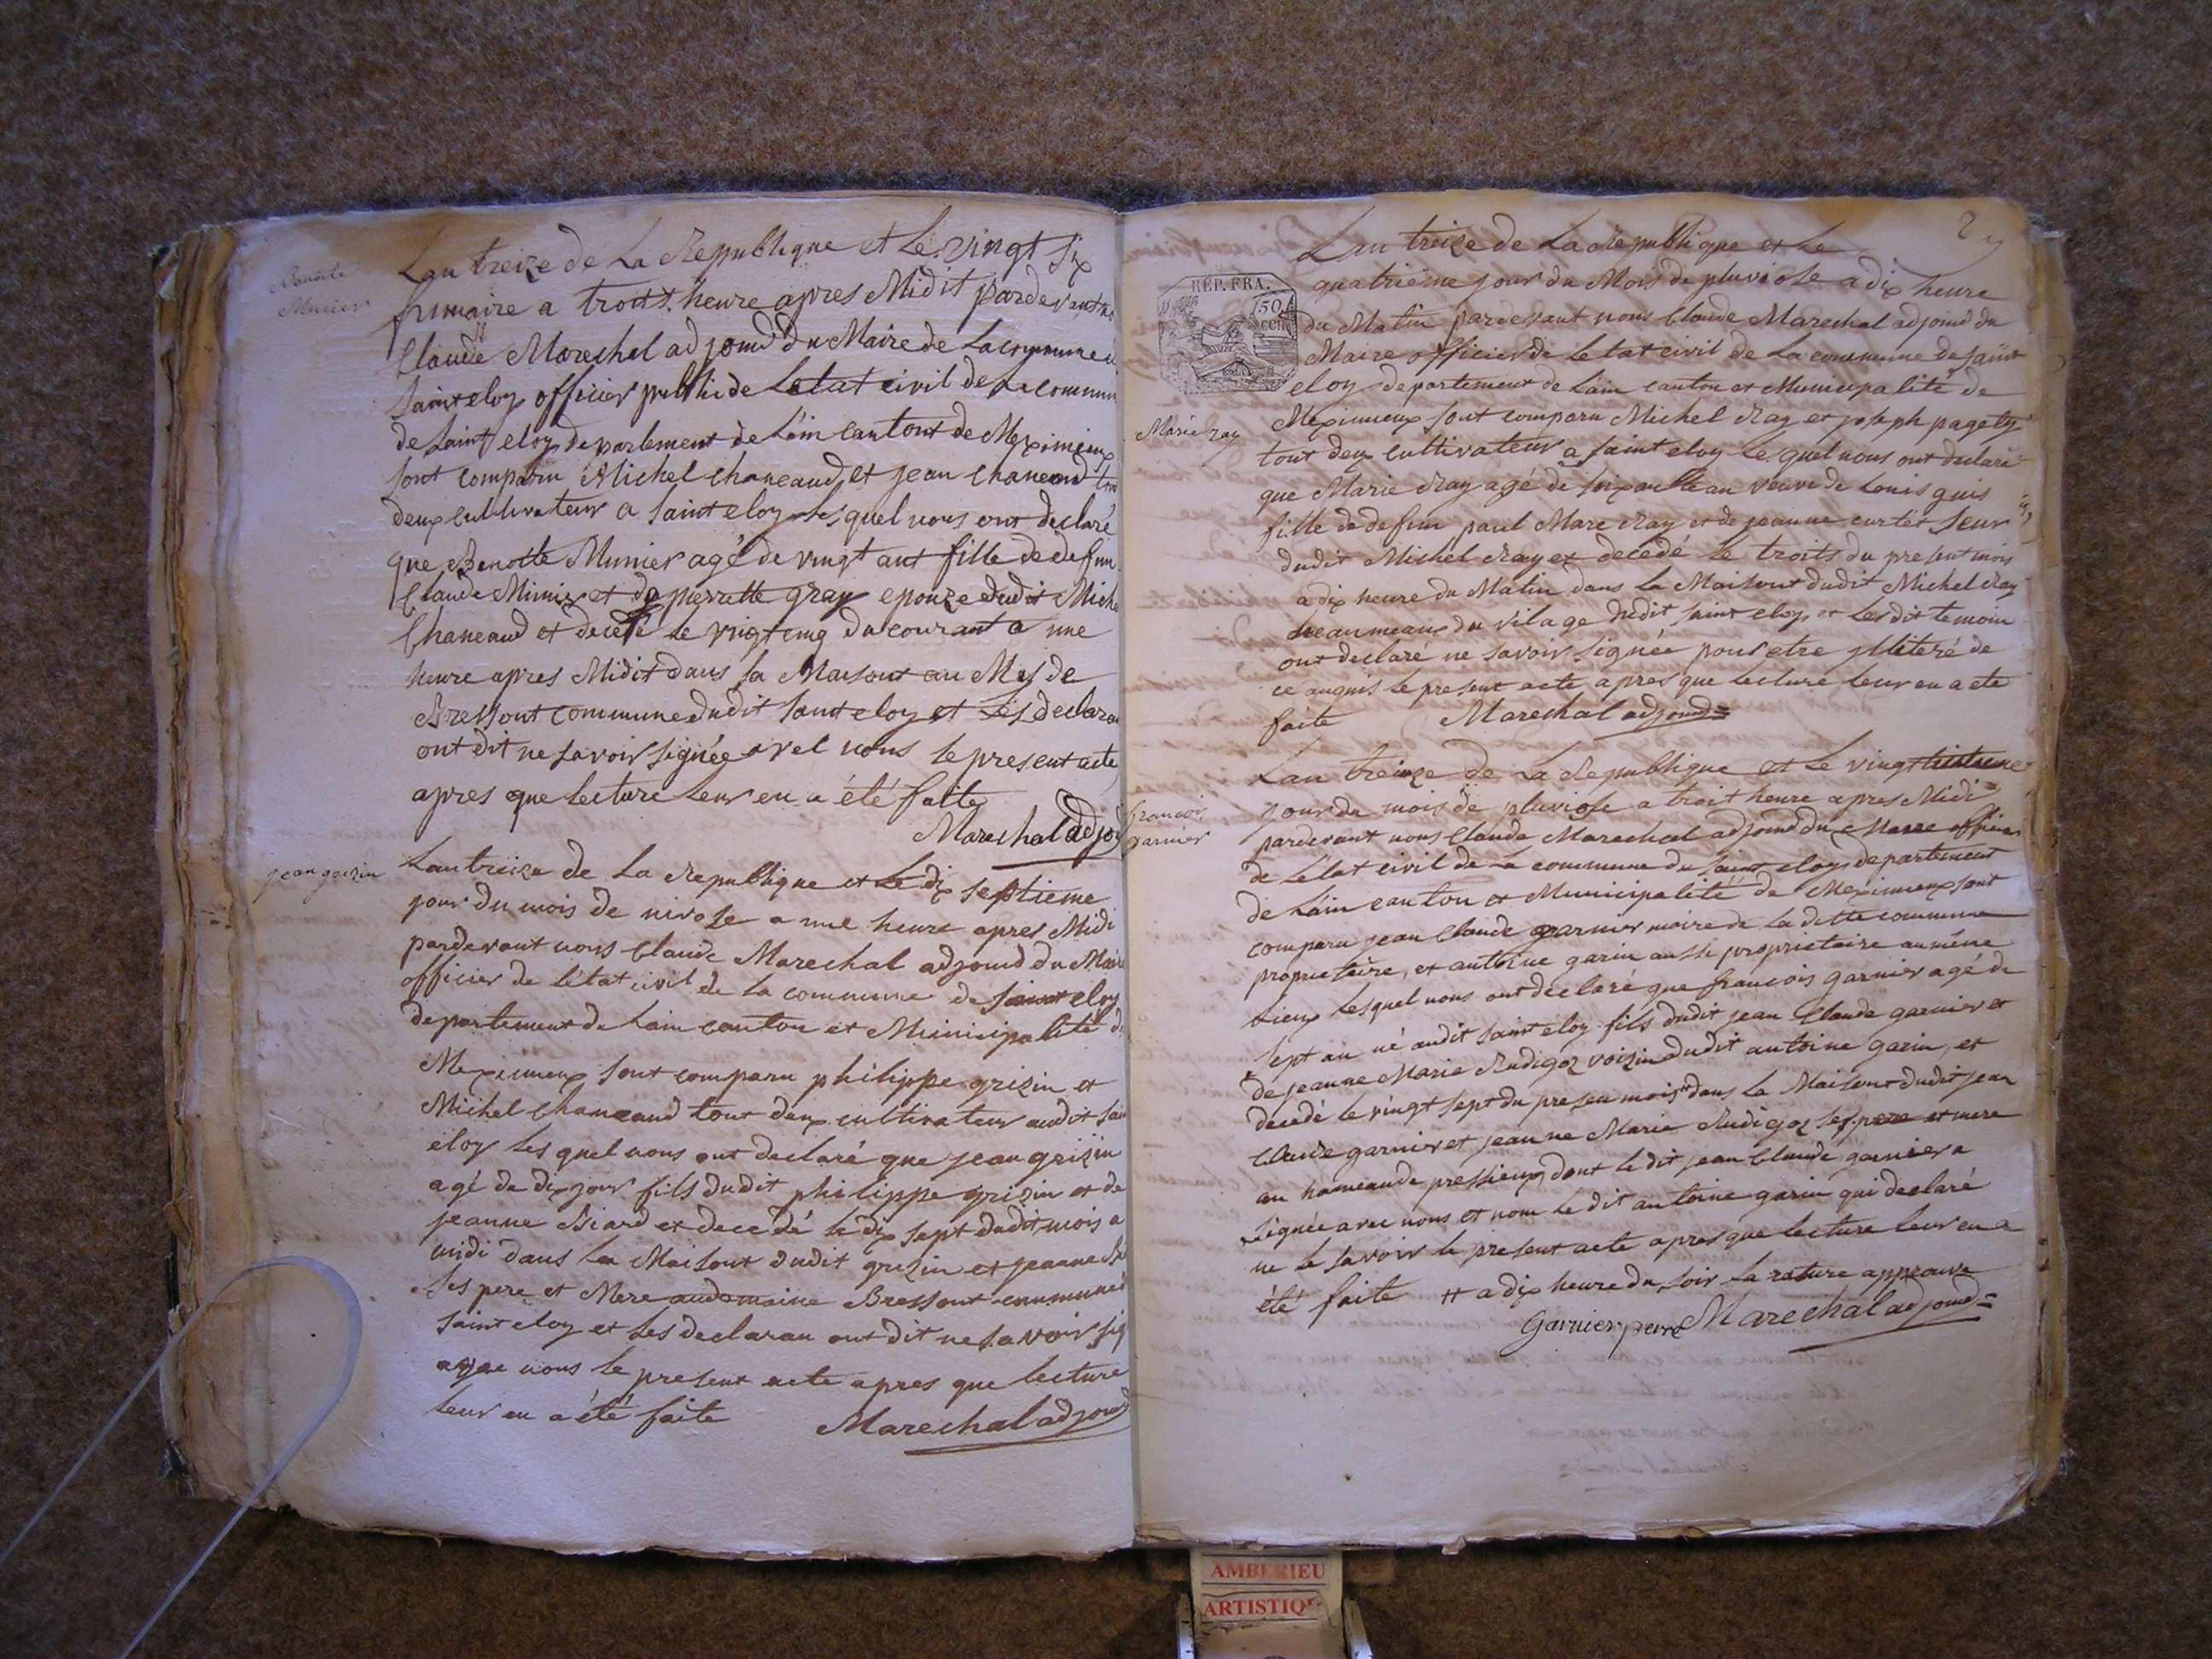 Benoite
Munier
Lan treize de La Republique et Le vingt six
frimaire a troits heure apres Midit pardevant
Claude Marechal adjoind du Maire de La commune
saint eloy officier public de Letat civil de La commun
de saint eloy departement de Lain Cantont de Meximieux
sont comparu Michel chaneaud et jean chaneaud
deux cultivateur a saint eloy Lesquel nous ont declaré
que Benoite Munier agé de vingt ant fille de defun
Claude Munier et de pierrette gray epouze dudit Miche
Chaneaud et decedé le vingt cinq du courant a une
heure apres Midit dans sa Maisont au Mas de
Bressont commune dudit saint eloy et Les declaran
ont dit ne savoir signée avel nous le present acte
apres que lecture leur en a été faite
Marechal adjoi
jean grizin
Lan treize de La Republique et Le dix septieme
jour du mois de nivose a une heure apres Midi
pardevant nous Claude Marechal adjoind du Maire
officier de létat civil de la commune de saint eloy
departement de Lain canton et Municipalité d
Meximieux sont comparu philippe grizin et
Michel Chaneaud tout deux cultivateur audit sain
eloy Lesquel nous ont declaré que jean grizin
agé de dix jour fils dudit philippe grizin et de
jeanne Biard et decedé le dix sept dudit mois a
midi dans La Maisont dudit grizin et jeanne
ses pere et Mere au domaine Bressont commune d
saint eloy et Les declaran ont dit ne savoir sig
avec nous le present acte apres que lecture
leur en a été faite Marechal adjoind
2
Lan treize de La Republique et Le
REP. FRA.
50
quatrieme jour du Mois de pluviose a dix heure
du Matin pardevant nous Claude Marechal adjoind du
Maire officier de Letat civil de La commune de saint
eloy departement de Lain canton et Municipalité de
Marie ray
Meximieux sont comparu Michel Ray et joseph pagety
tout deux cultivateur a saint eloy Lesquel nous ont declaré
que Marie Ray agé de soixante an veuve de Louis guis
fille de defun paul Marc Ray et de jeanne curtet seur
dudit Michel Ray et decedé le troits du present mois
a dix heure du Matin dans la Maisont dudit Michel Ray
du village dudit saint eloy et Lesdit temoin
ont declaré ne savoir signée pour etre illiteré de
ce auquis le present acte apres que lecture leur en a ete
faite Marechal adjoind
francois
garnier
Lan treize de La Republique et Le vingt
jour du mois de pluviose a troit heure apres Midi
pardevant nous Claude Marechal adjoind du Maire officier
de Létat civil de La commune de saint eloy departement
de Lain canton et Municipalité de Meximieux sont
comparu jean Claude garnier maire de La ditte commune
proprietaire, et antoine garin aussi proprietaire au méme
lieux Lesquel nous ont declaré que francois garnier agé de
sept an né audit saint eloy fils dudit jean Claude garnier et
de jeanne Marie Rudigoz voizin dudit antoine garin, et
decedé le vingt sept du presen mois # dans la Maisont dudit jean
Claude garnier et jeanne Marie Rudigoz ses pere et mere
au hameau de pressieux dont le dit jean Claude garnier a
signée avec nous et nom le dit antoine garin qui declaré
ne le savoir le present acte apres que lecture leur en a
été faite # a dix heure du soir La rature approuve
Garnier perre Marechal adjoind
AMBERIEU
ARTISTIQUE